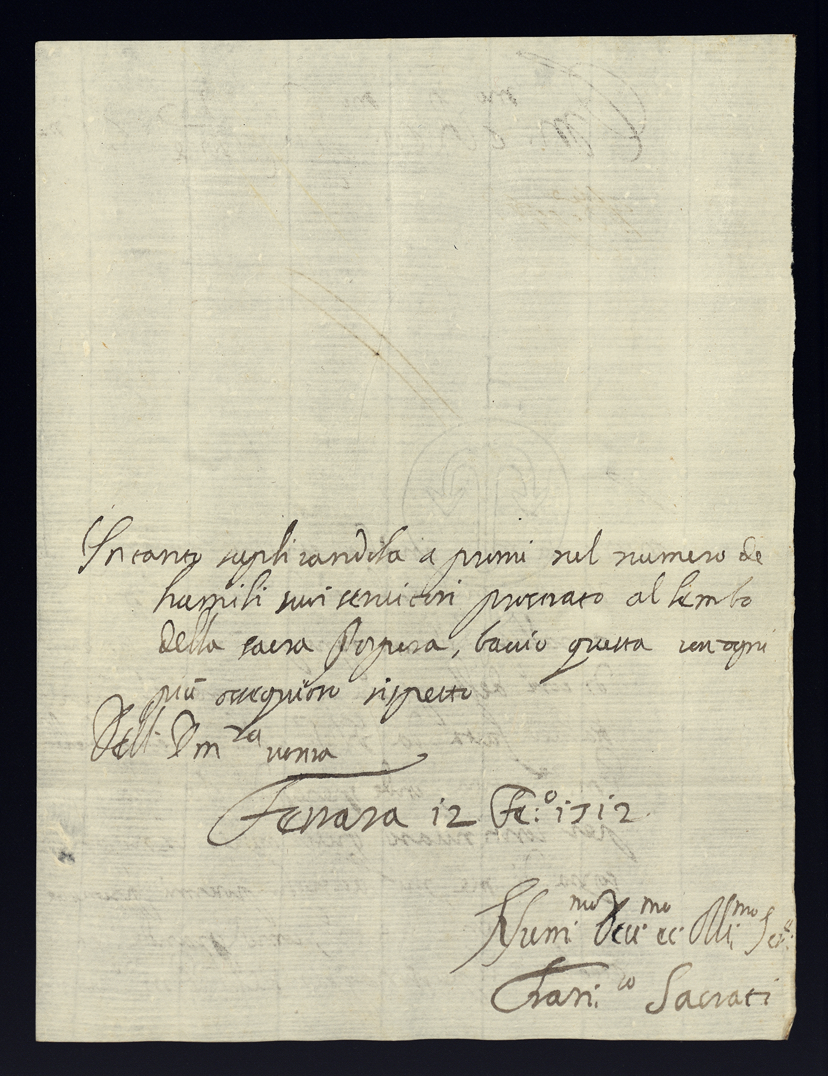 Intanto suplicandola a pormi nel numero de
humili suoi servitori prostrato al lembo
della sacra Porpora, bacio questa con ogni
più ossequioso rispetto
Dell' Em.za vostra
Ferrara 12 Fe:o 1712
Humi:mo Deu:mo et Obli:mo Ser:e
Fran:co Sacrati